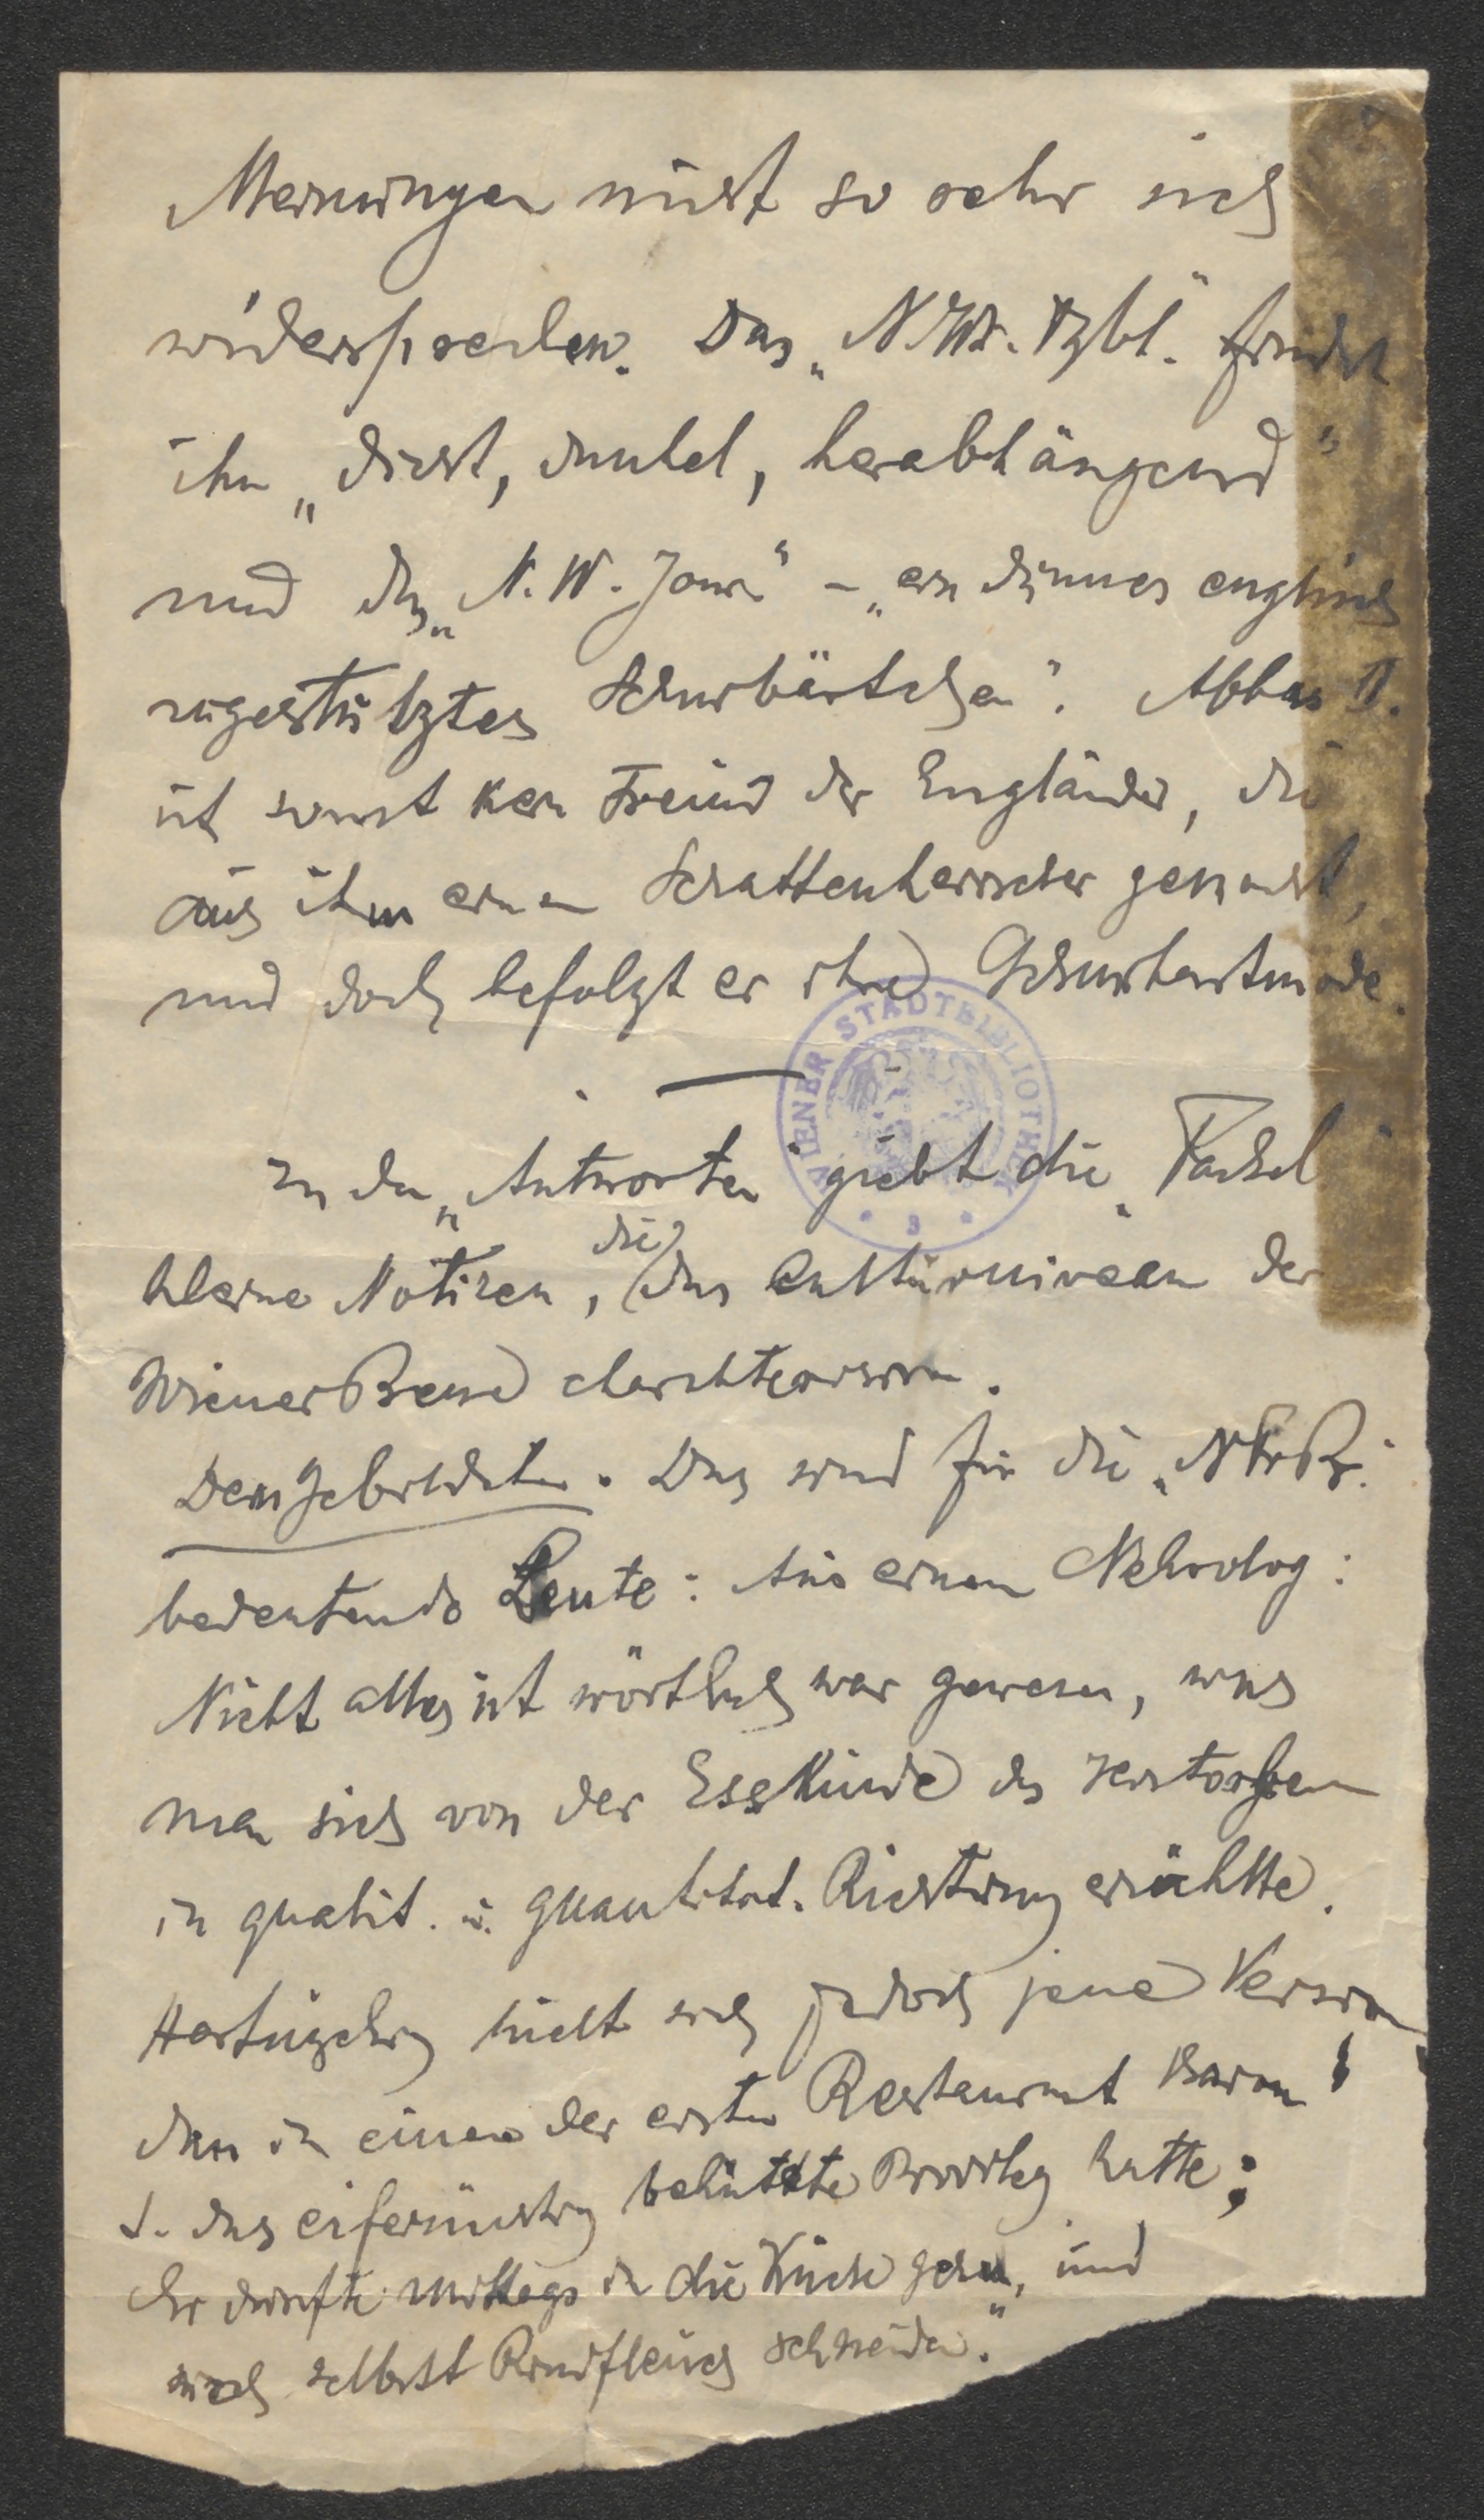 Meinungen nicht so sehr sich
widersprechen. Das „N. Wr. Tgbl." findet
ihn „dicht, dunkel, herabhängend"
und das „N. W. Jour." – „ein dünnes englisch
zugestutztes Schnurbärtchen". Abbas II.
ist sonst kein Freund der Engländer, die
aus ihm einen Schattenherrscher gemacht,
und doch befolgt er ihre Schnurbartmode.
In den „Antworten" giebt die „Fackel"
kleine Notizen, die das Culturniveau der
Wiener Presse charakterisiren.
Dem Gebildeten. Das sind für die „N Fr Pr."
bedeutende Leute: Aus einem Nekrolog:
Nicht alles ist wörtlich war gewesen, was
man sich von der Esskunde des Verstorbenen
in qualit. u. quantitat. Richtung erzählte.
Hartnäckig hielt sich jedoch jene Version
dass in einem der ersten Restaurant Baron
S. das eifersüchtig behütete Privileg hatte;
Er durfte mittags in die Küche gehen, und
sich selbst Rindfleisch schneiden."
WIENER STADTBIBLIOTHEK